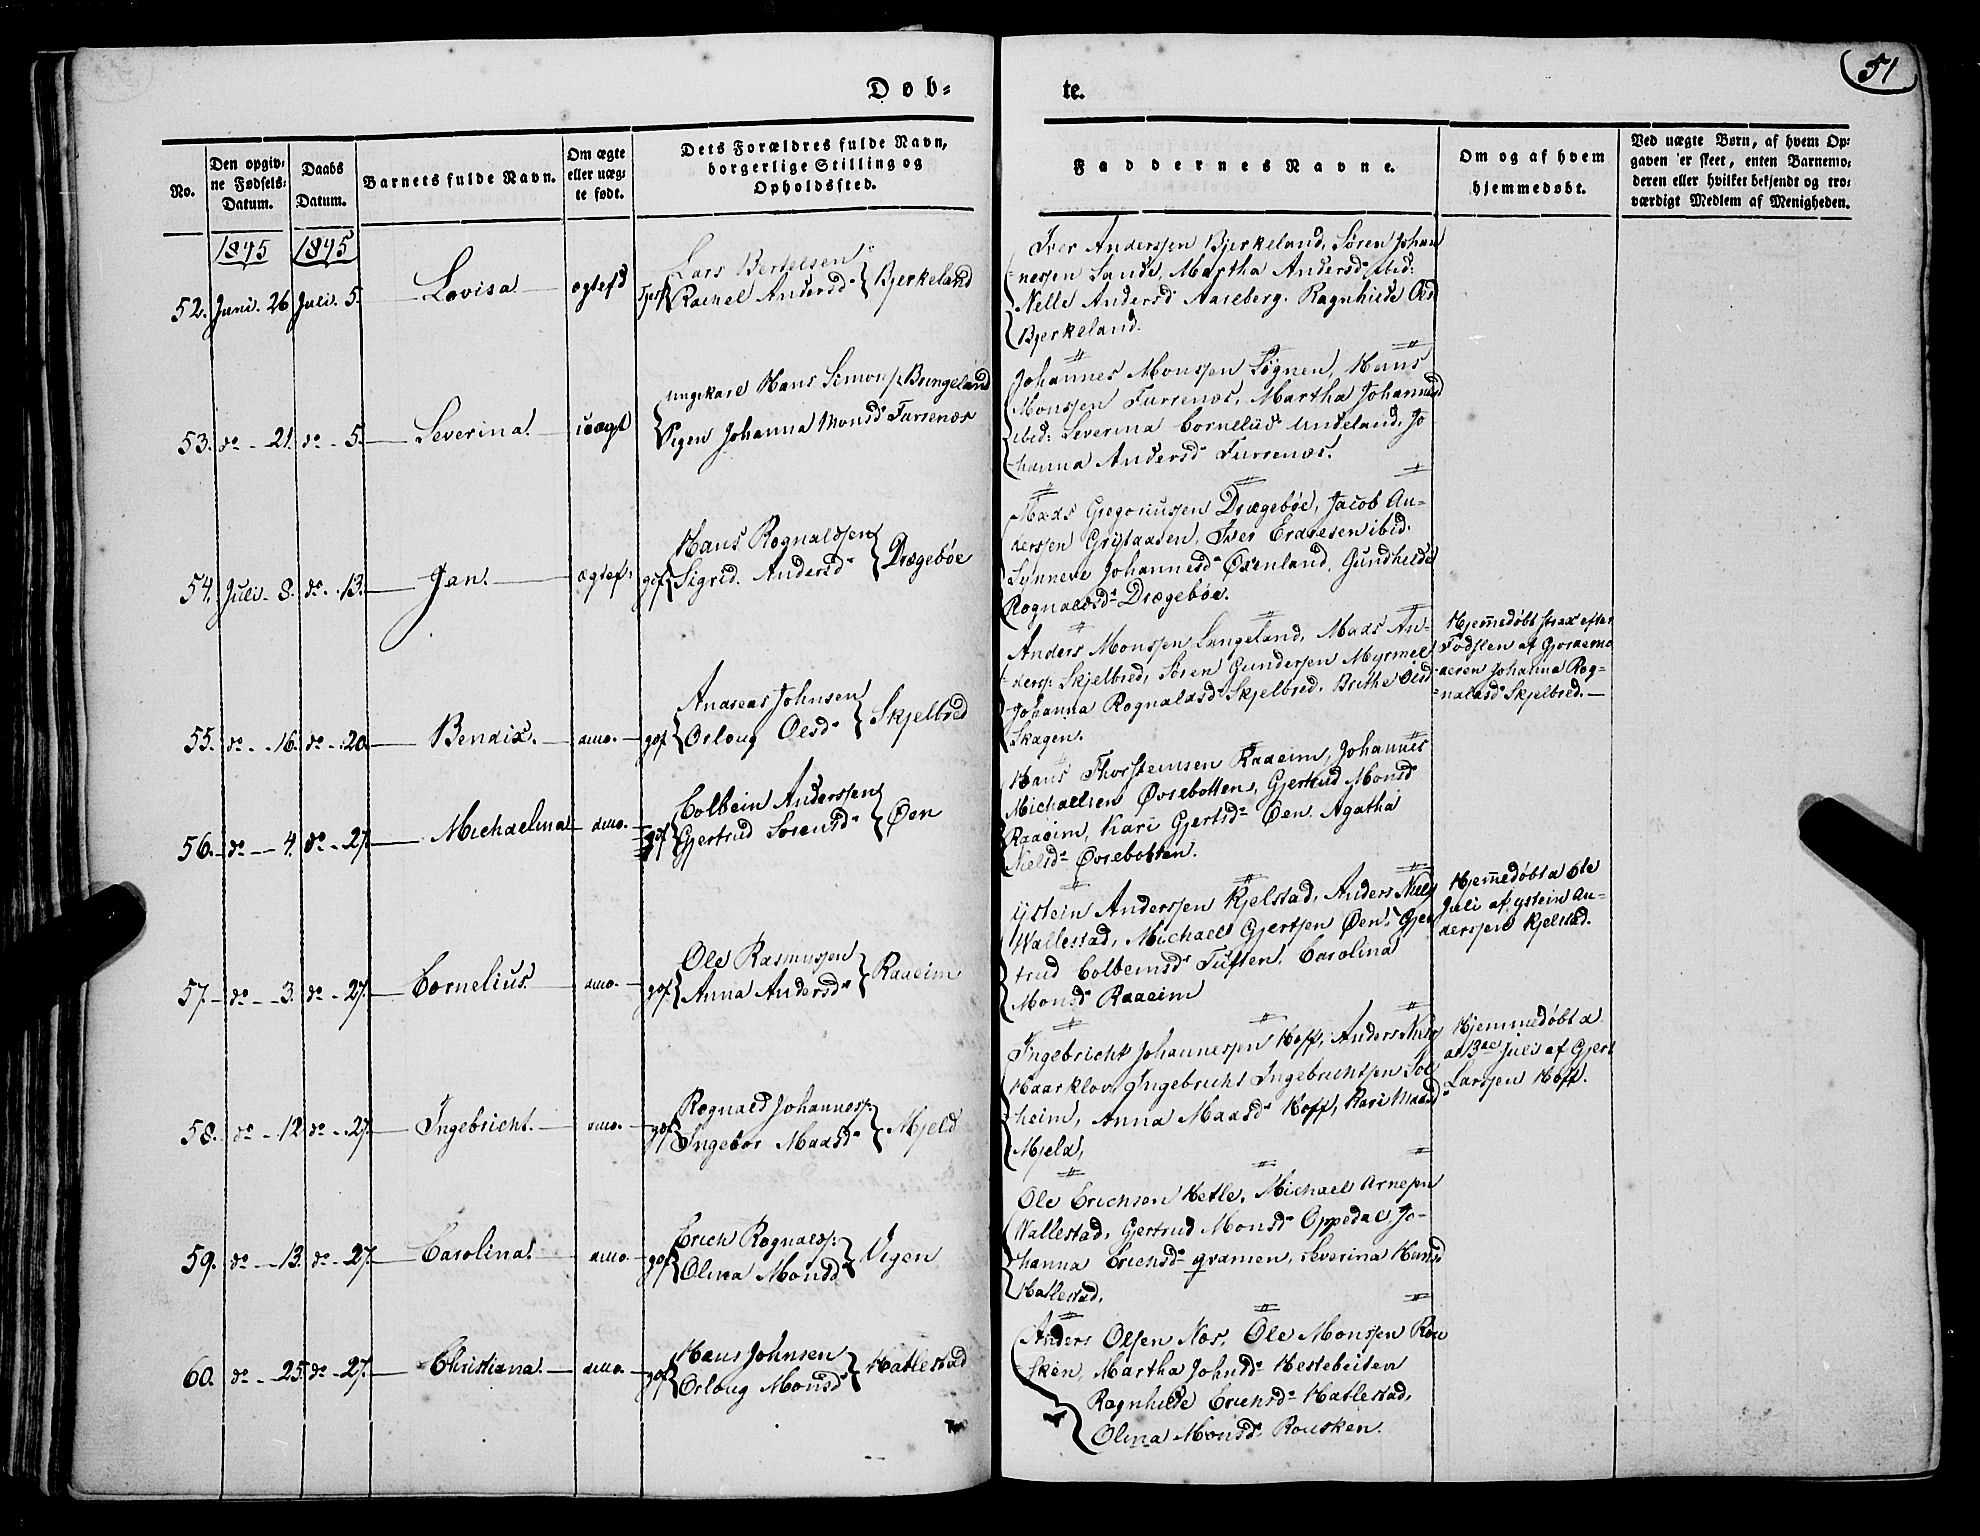 51
Døb-
te.
No.
Den opgiv-
ne Fødsels-
Datum.
Daabs
Datum.
Barnets fulde Navn.
Om ægte
eller uæg-
te født.
Dets Forældres fulde Navn,
borgerlige Stilling og
Opholdssted.
Faddernes Navne.
Om og af hvem
hjemmedøbt.
Ved uægte Børn, af hvem Op-
gaven er skeet, enten Barnemo-
deren eller hvilket bekjendt og tro-
værdigt Medlem af Menigheden.
1845 1845
52. Juni. 26 Juli. 5. Lovisa ægtefd
Lars Bertelsen
Rachel Andersd Bjerkeland
Iver Anderssen Bjerkeland, Søren Johan
nessen Sande, Martha Andersd ibid:
Nelle Andersd Aaseberg. Ragnhilde Olsd
Bjerkeland.
53. do - 21. do - 5. Severina uægt
ungkarl Hans Simons: Bungeland
Pigen Johanna Monsd Fursenæs
Johannes Monssen Søgnen, Hans
Monssen Fursenæs, Martha Johannesd
ibid: Severina Cornelius Undeland, Jo
hanna Andersd Fursenæs.
54. Juli - 8. do - 13. Jan. ægtef:
gif Hans Rognaldsen
Sigrid Andersd Drægebøe
Mads Gregoriussen Drægebøe, Jacob An-
derssen Grytaasen, Iver Endresen ibid:
Synneve Johannesd Øxenland, Gundhilde
Rognaldsd Drægebøe.
55. do - 16. do - 20. Bendix. dmo.
gif Andreas Johnsen
Orloug Olsd Skjelbred
Anders Monssen Langeland, Mads An-
ders: Skjelbred, Søren Gundersen Myrmel
Johanna Rognaldsd Skjelbred, Brithe Olsd
Skagen.
Hjemmedøbt strax efter
Fødslen af Gjordemo
deren Johanna Rog-
naldsd Skjelbred.
56. do - 4. do - 27. Michaelina dmo.
gif Colbein Anderssen
Gjertrud Sørensd Øen
Hans Thorsteinsen Raaeim, Johannes
Michaelsen Øvrebotten, Gjertrud Monsd
Raaeim, Kari Gjertsd Øen, Agatha
Nielsd Øvrebotten.
57. do - 3. do - 27. Cornelius. dmo.
gif Ole Rasmussen
Anna Andersd Raaeim
Ystein Anderssen Kjelstad, Anders Niels
Wallestad, Michael Gjertsen Øen, Gjer
trud Colbeinsd Tuften, Carolina
Monsd Raaeim
Hjemmedøbt d 6te
Juli af Ystein An-
derssen Kjelstad.
58. do - 12 do - 27. Ingebricht. dmo.
gif Rognald Johannes:
Ingebor Madsd Mjeld
Ingebricht Johannessen Hoff, Anders Niels
Haarklov, Ingebricht Ingebrichtsen Sol
heim, Anna Madsd Hoff, Kari Madsd
Mjeld,
Hjemmedøbt d
13de Juli af Gjert
Larssen Hoff.
59. do - 13. do - 27. Carolina. dmo.
gif Erich Rognalds:
Olina Monsd Vigen
Ole Erichsen Hetle, Michael Arnesen
Wallestad, Gjertrud Monsd Oppedal, Jo-
hanna Erichsd Qvamen, Severina Hansd
Hatlestad.
60. do - 25. do - 27. Christiana. dmo.
gif Hans Johnsen
Orloug Monsd Hatlestad
Anders Olsen Næs, Ole Monssen Rou
sken, Martha Johnsd Hestebeiten
Ragnhilde Erichsd Hatlestad,
Olina Monsd Rousken.